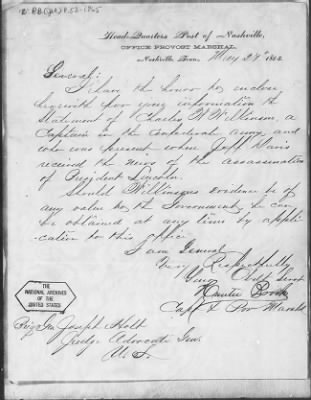 Head Quarters Post of Nashville,
OFFICE PROVOST MARSHAL,
Nashville, Tenn, May 27th 186
General:
I have the honor to enclose
herewith for your information the
statement of Charles W
Captain in the Confederate Army, and
who was present when Jeff Davis
received the news of the assassination
of President Lincoln.
Should evidence be of
any value to the Government, he can
be obtained at any time by appli-
cation to this office
I am General
Very Respectfully
Your Obdt Servt
Hunter Brooke
Capt & Pro Marshl
THE
NATIONAL ARCHIVES
OF THE
UNITED STATES
Brig Gen Joseph Holt
Judge Advocate Gen.
U. S.